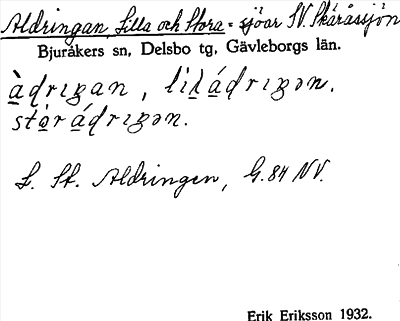 Aldringan, Lilla och Stora = sjöar SV. Skåråssjön
Bjuråkers sn, Delsbo tg, Gävleborgs län.
L. St. Aldringen, G. 84 NV.
Erik Eriksson 1932.